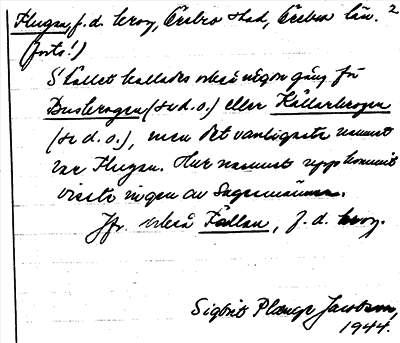 Flugan, f.d. krog, Örebro stad, Örebro län. 2
(forts!)
Stället kallades också någon gång för
Buskkrogen (se d.o.) eller Källarkrogen
(se d.o.), men det vanligaste namnet
var Flugan. Hur namnet uppkommit
visste ingen av sagesmännen.
Jfr. också Fällan, f.d. krog.
Sigbrit Plænge Jacobson,
1944.